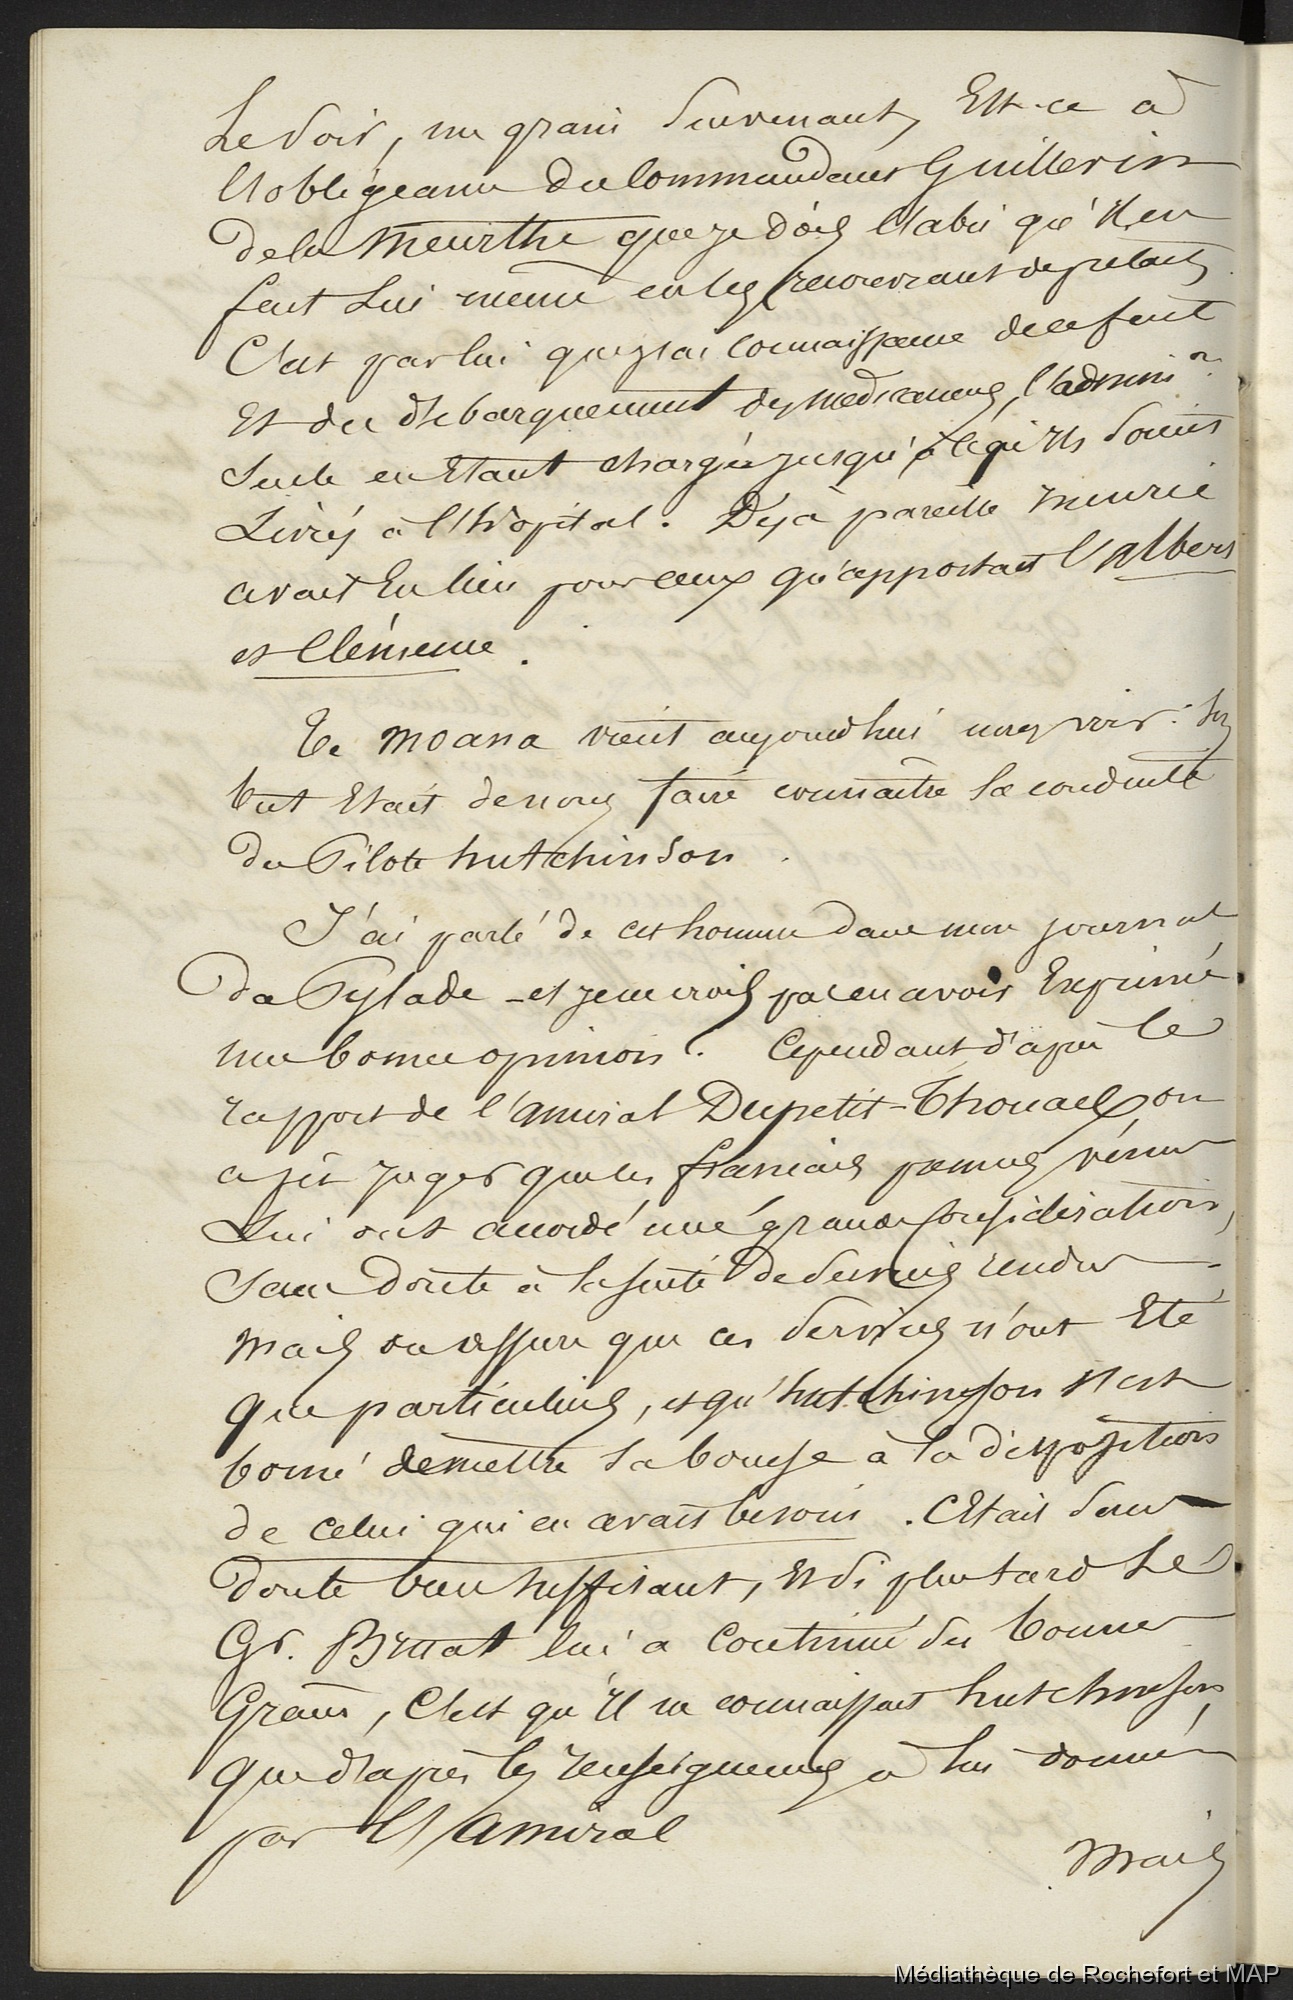 Le Soir, un grain Survenant, Est-ce à
l'obligeance du Commandant Guillevin
de la Meurthe que je dois l'abri qu'Il en
fait Lui même en les recouvrant de prélarts
C'est par lui que j'ai connaissance de ce fait
Et du débarquement des médicamens, l'admin.on
Seule en Etant chargée jusqu'à ce qu'Ils Soient
Livrés à l'hôpital. Déjà pareille Incurie
avait Eu lieu pour ceux qu'apportait l'Albert
et Clémence.
Te Moana vient aujourd'hui nous voir. Son
but Etait de nous faire connaître la conduite
du Pilote hutchinson.
J'ai parlé de cet homme dans mon journal
du Pylade - et je ne crois pas en avoir Exprimé
une bonne opinion. Cependant d'après le
rapport de l'amiral Dupetit-Thouars, on
a pu juger que les français premiers venus
Lui ont accordé une grande considération,
Sans doute à la suite de Services rendus.
Mais on assure que ces Services n'ont Eté
que particuliers, et qu'hutchinson s'est
borné de mettre Sa bourse à la disposition
de celui qui en avait besoin. C'Etait Sans
doute bien Suffisant, Et Si plus tard Le
Gr. Bruat lui a continué Ses bonnes
Graces, C'est qu'Il ne connaissait hutchinson,
que d'après les renseignemens à lui donnés
par l'amiral
Mais
Médiathèque de Rochefort et MAP